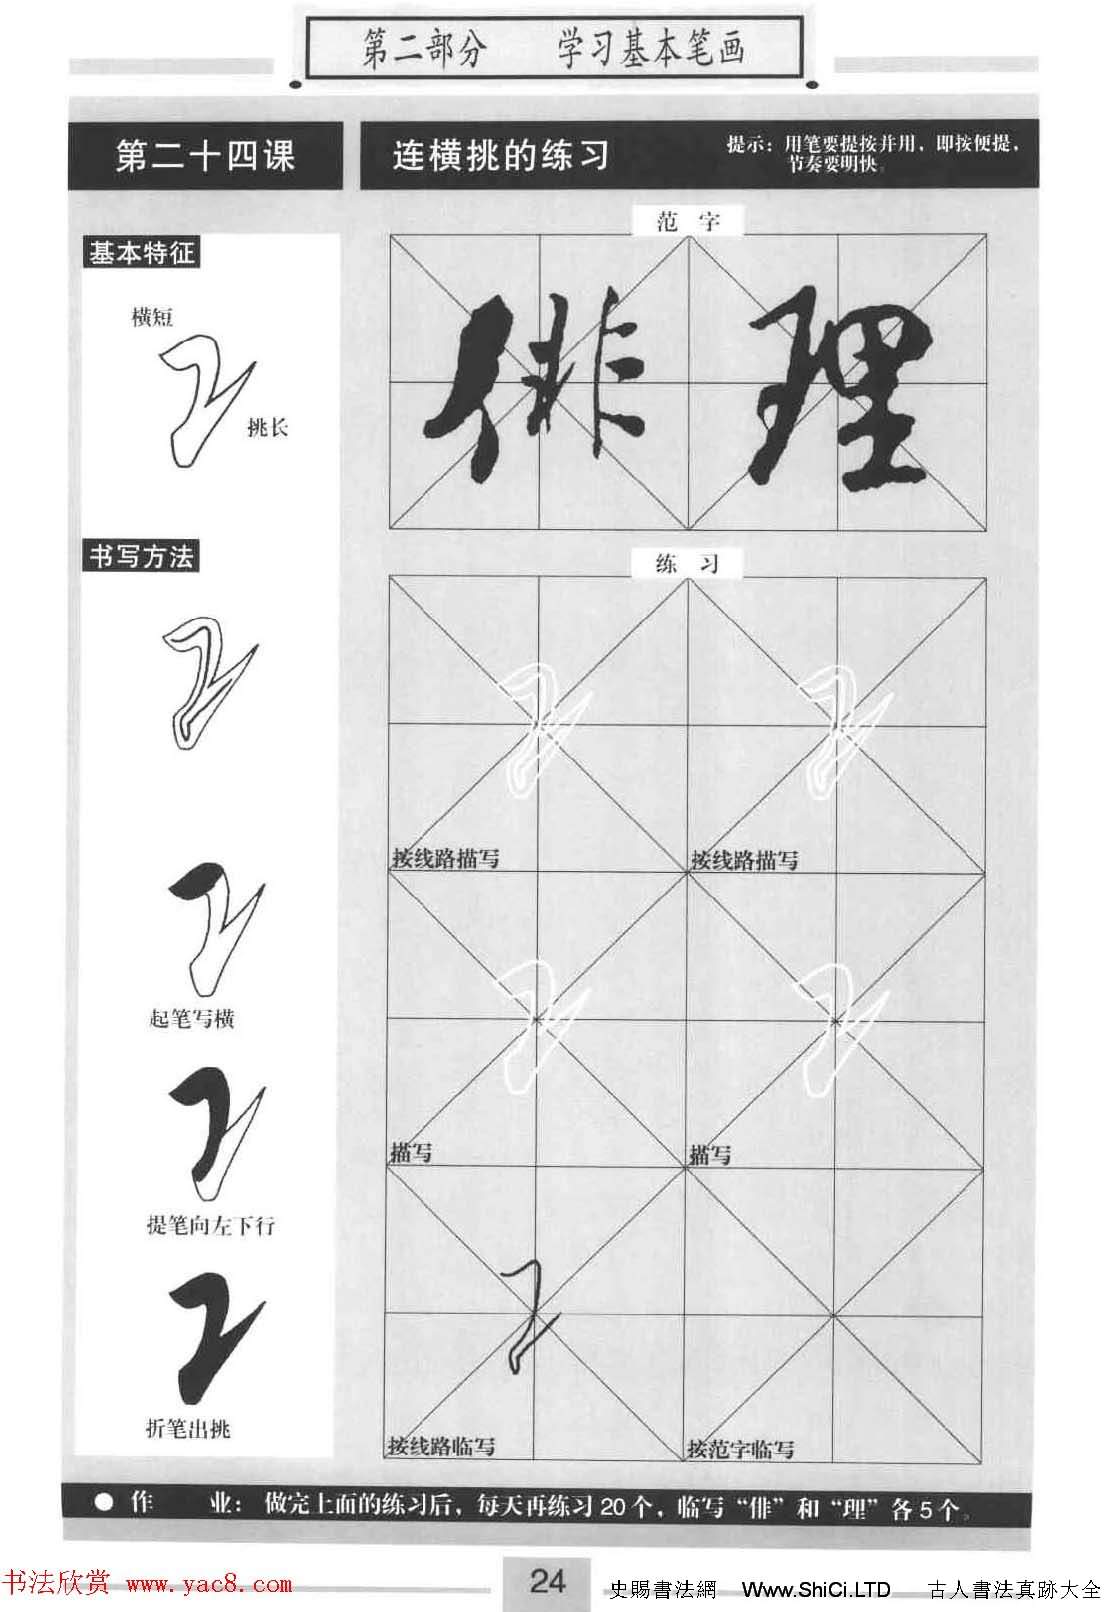 第二部分 学习基本笔画
第二十四课
连横挑的练习
提示：用笔要提按并用，即按便提，
节奏要明快。
基本特征
横短
挑长
书写方法
起笔写横
提笔向左下行
折笔出挑
范 字
俳 理
练 习
按线路描写 按线路描写
描写 描写
按线路临写 按范字临写
● 作 业： 做完上面的练习后，每天再练习20个，临写“俳”和“理”各5个。
24
书法欣赏 www.yac8.com
史賜書法網 Www.ShiCi.LTD 古人書法真跡大全